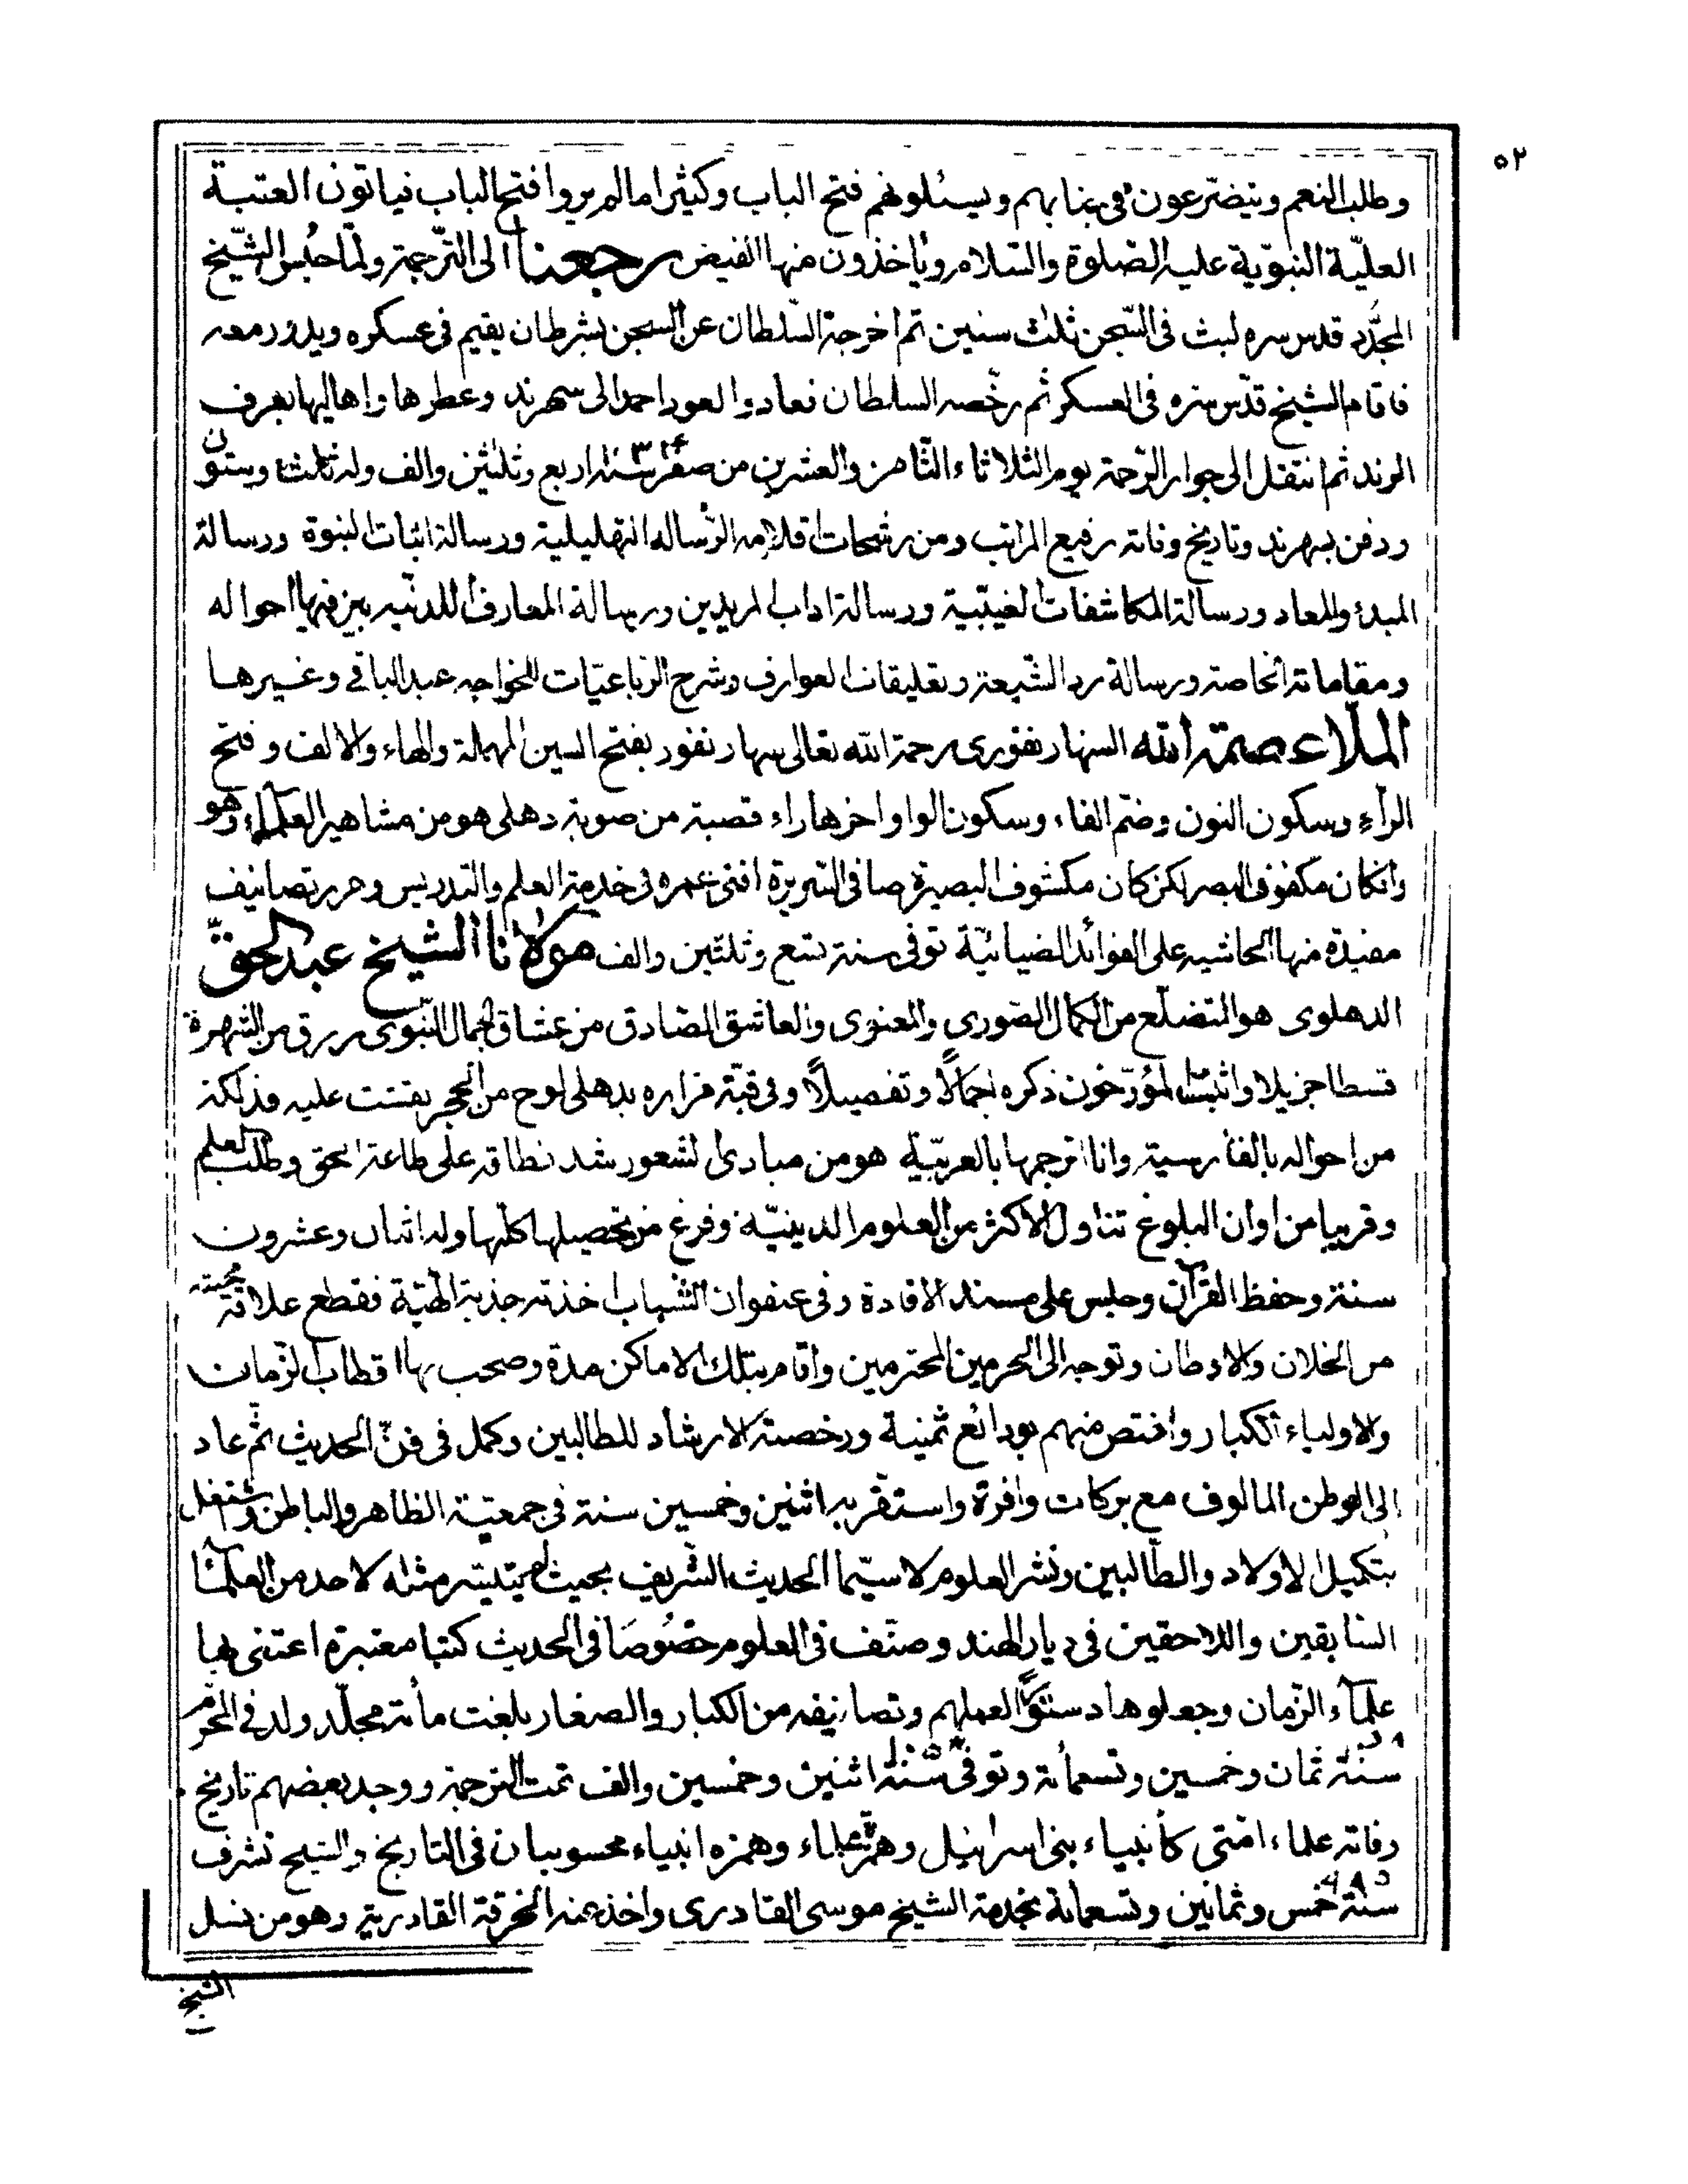 ٥٢
وطلب النعم ويتضرعون فى جنابهم ويسئلونهم فتح الباب وكثيرا ما لم يروا فتح الباب فياتون العتبة
العليّة النبويّة عليه الصلوة والسّلام ويأخذون منها الفيض رجعنا الى التّرجمة ولمّا حُبس الشّيخ
المجدّد قدس سره لبث فى السّجن ثلٰث سنين ثم اخرجه السّلطان عن السجن بشرط ان يقيم فى عسكره ويدور معه
فاقام الشيخ قدّس سره فى العسكر ثم رخّصه السلطان فعاد والعود احمد الى سهرند وعطرها واهاليها بعرف
الرند ثم انتقل الى جوار الرّحمة يوم الثلاثاء الثّامن والعشرين من صفر سنة اربع وثلٰثين والف وله ثلث وستون
ودفن بسهرند وتاريخ وفاته رفيع المراتب ومن رشحات اقلامه الرّساله التهليلية ورسالة اثبات النبوة ورسالة
المبدأ والمعاد ورسالة المكاشفات الغيبية ورسالة اداب المريدين ورسالة المعارف اللدنّيه بين فيها احواله
ومقاماته الخاصة ورسالة رد الشّيعة وتعليقات العوارف وشرح الرّباعيّات للخواجه عبد الباقى وغيرها
الملّا عصمة الله السهارنفورى رحمة الله تعالى سهارنفور بفتح السين المهملة والهاء والالف وفتح
الرّاء وسكون النون وضم الفاء وسكون الواو اخرها راء قصبة من صوبة دهلى هو من مشاهير العلماء وهو
وانكان مكفوف البصر لكن كان مكشوف البصيرة صافى السّريرة افنى عمره فى خدمة العلم والتدريس وحرر تصانيف
مفيدة منها الحاشيه على الفوائد الضيائيّة توفى سنة تسع وثلثين والف مولانا الشيخ عبد الحقّ
الدهلوى هو المتضلّع من الكمال الصّورى والمعنوى والعاشق الصّادق من عشاق الجمال النّبوى رزق من الشهرة
قسطا جزيلا واثبت المؤرّخون ذكره اجمالًا وتفصيلًا وفى قبّة مزاره بدهلى لوح من الحجر نقشت عليه فذلكة
من احواله بالفارسية وانا اترجمها بالعربيّة هو من مبادى الشعور شد نطاقه على طاعة الحق وطلب العلم
وقريبا من اوان البلوغ تناول الاكثر من العلوم الدينيّة وفرغ من تحصيلها كلّها وله اثنان وعشرون
سنة وحفظ القرآن وجلس على مسند الافادة وفى عنفوان الشباب اخذته جذبة الٰهيّة فقطع علاقة محبته
من الخلان والاوطان وتوجه الى الحرمين المحترمين واقام بتلك الاماكن مدة وصحب بها اقطاب الزّمان
والاولياء الكبار واختص منهم بودائع ثمينة ورخصة الارشاد للطالبين وكمل فى فنّ الحديث ثم عاد
الى الوطن المالوف مع بركات وافرة واستقر به اثنين وخمسين سنة فى جمعيّة الظاهر والباطن واشتغل
بتكميل الاولاد والطّالبين ونشر العلوم لا سيّما الحديث الشّريف بحيث لم يتيسر مثله لاحد من العلمآء
السّابقين واللاحقين فى ديار الهند وصنّف فى العلوم خصُوصًا فى الحديث كتبا معتبرة اعتنى بها
علمآء الزّمان وجعلوها دستورًا لعملهم وتصانيفه من الكبار والصغار بلغت مأته مجلّد ولد فى المحرّم
سنة ثمان وخمسين وتسعمائة وتوفّى سنة اثنين وخمسين والف تمت الترجمة ووجد بعضهم تاريخ
وفاته علماء امّتى كأنبياء بنى اسرائيل وهمزة علماء وهمزه انبياء محسوبان فى التاريخ والشيخ تشرف
سنة خمس وثمانين وتسعمائة بخدمة الشيخ موسى القادرى واخذ عنه الخرقة القادرية وهو من نسل
الشيخ